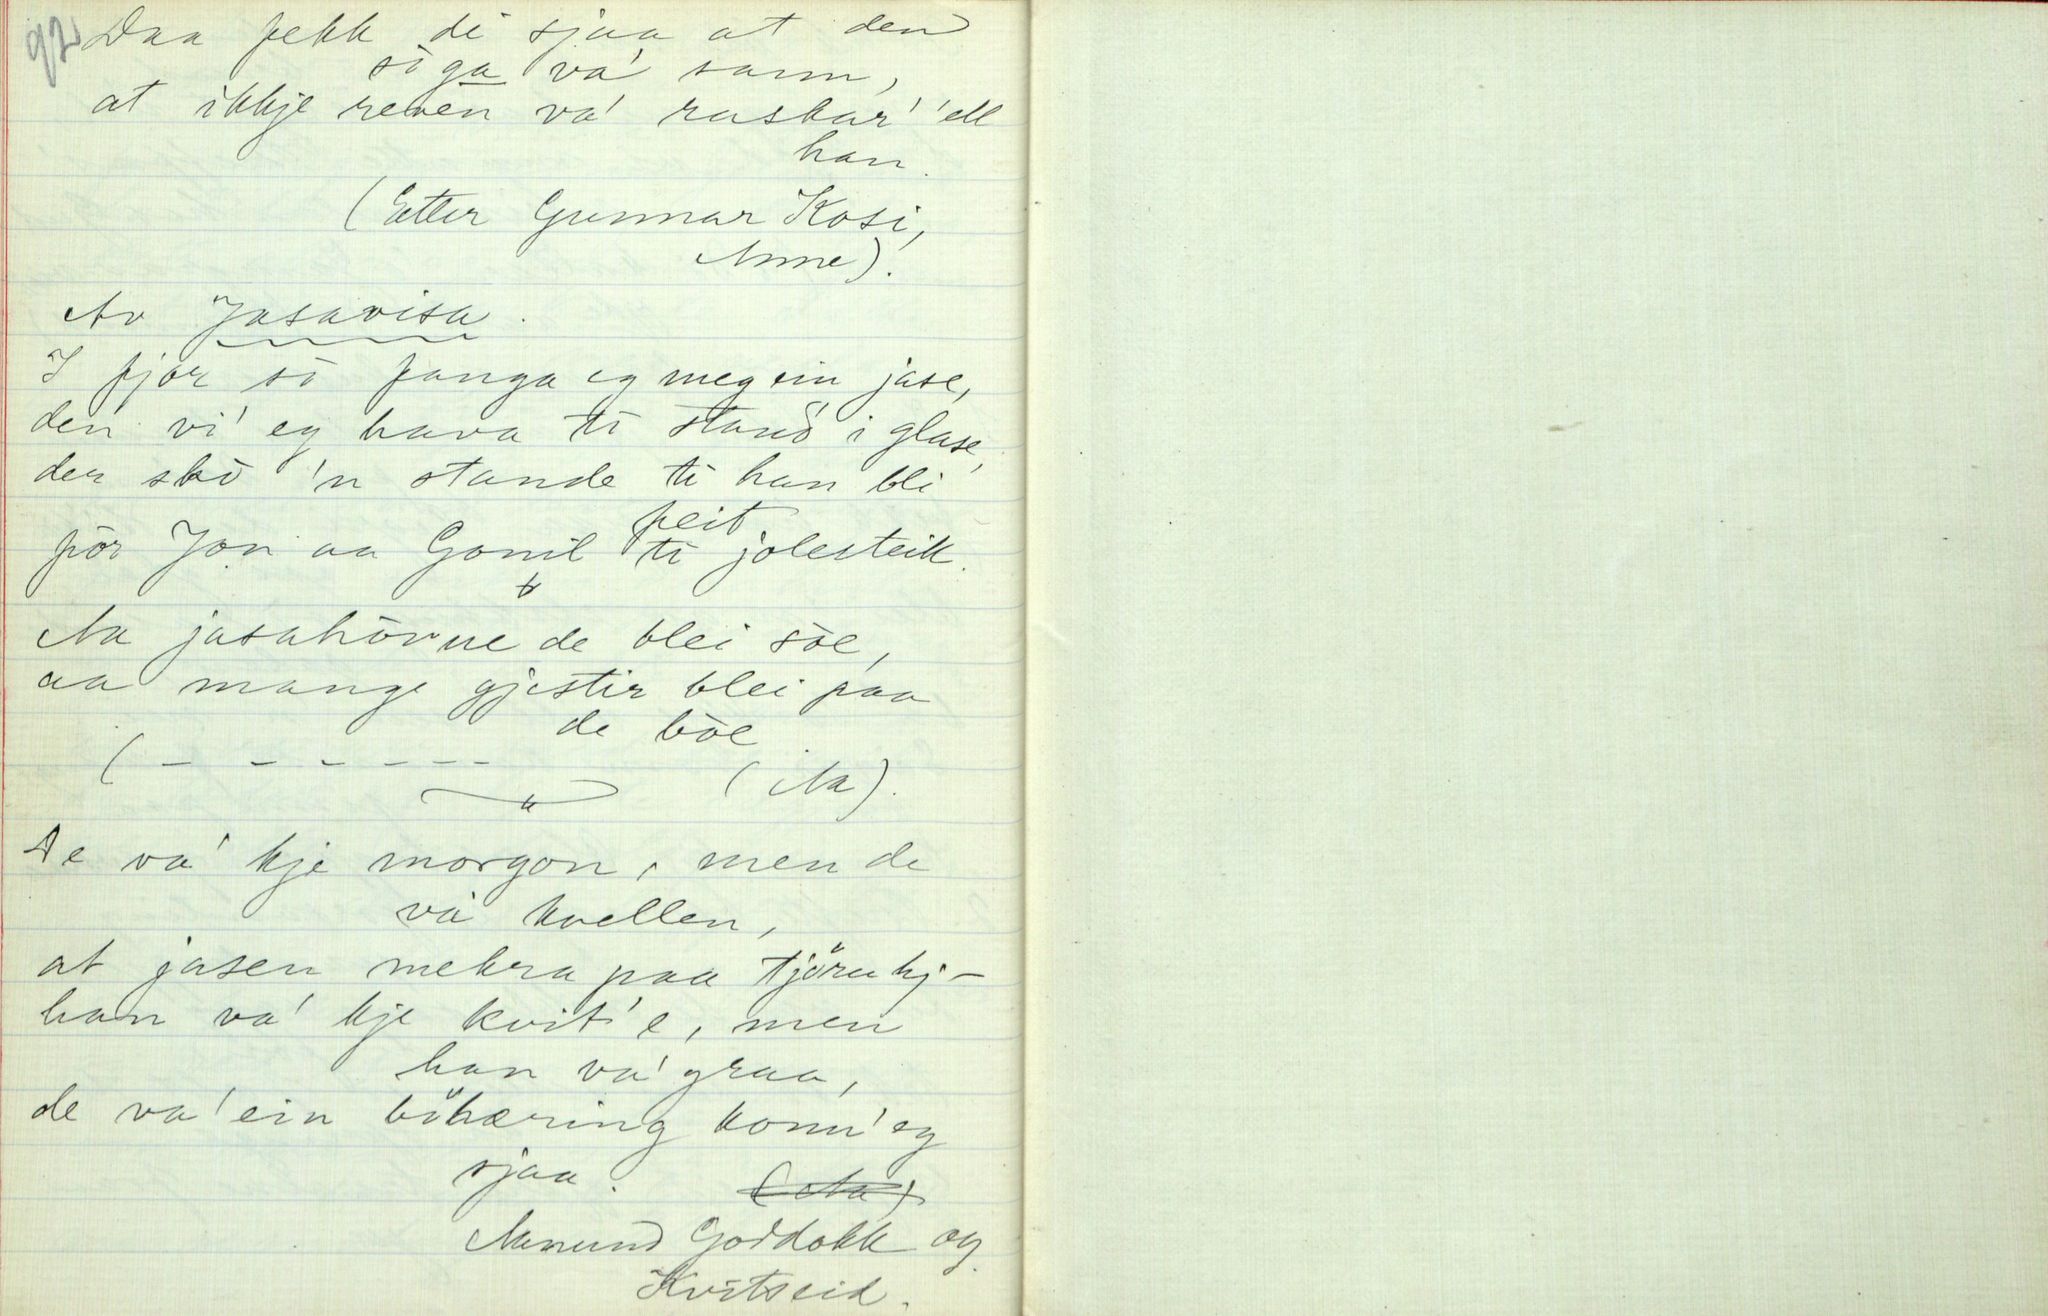 92
Daa fekk di sjaa at den
siga va' sann,
at ikkje reven va' raskar' 'ell
han.
(Etter Gunnar Kosi,
Anne).
Av Jasavisa.
I fjor så fanga eg meg ein jase,
den vi' eg hava ti stand i glase,
der skò 'n stande ti han bli
feit
før Jon aa Gonil ti jolesteik.
Aa jasahòvue de blei sòe,
aa mange gjestir blei paa
de bòe
( – – – – – – (Aa).
De va' kje morgon, men de
va' kvellen,
at jasen mekra paa
han va' kje kvit'e, men
han va' graa,
de va' ein konn' eg
sjaa. (Aa)
Aanund Goddokk og
Kvitseid.